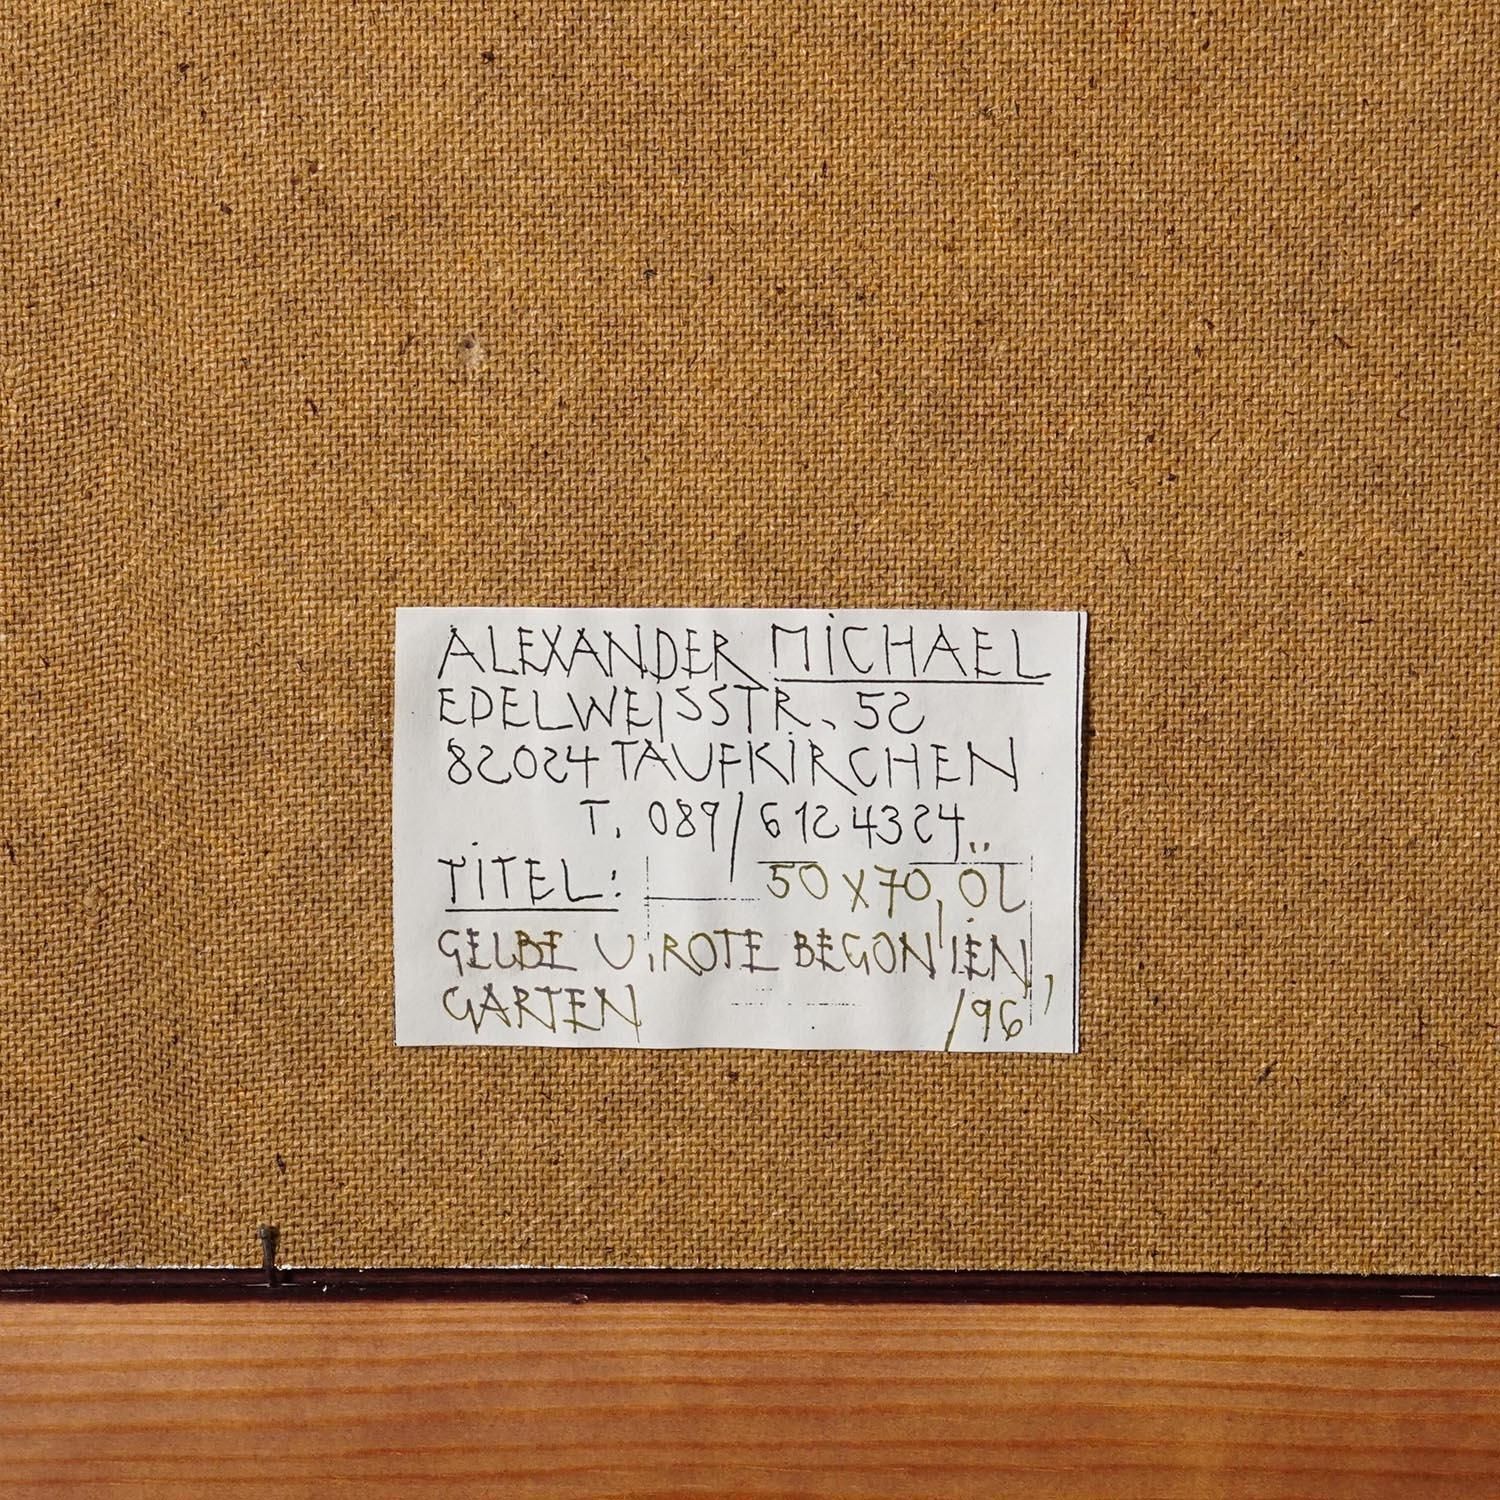 ALEXANDER MICHAEL
EDELWEISSTR. 52
82024 TAUFKIRCHEN
T. 089/6124324
TITEL: 50 X 70, ÖL
GELBE U. ROTE BEGONIEN,
GARTEN /96